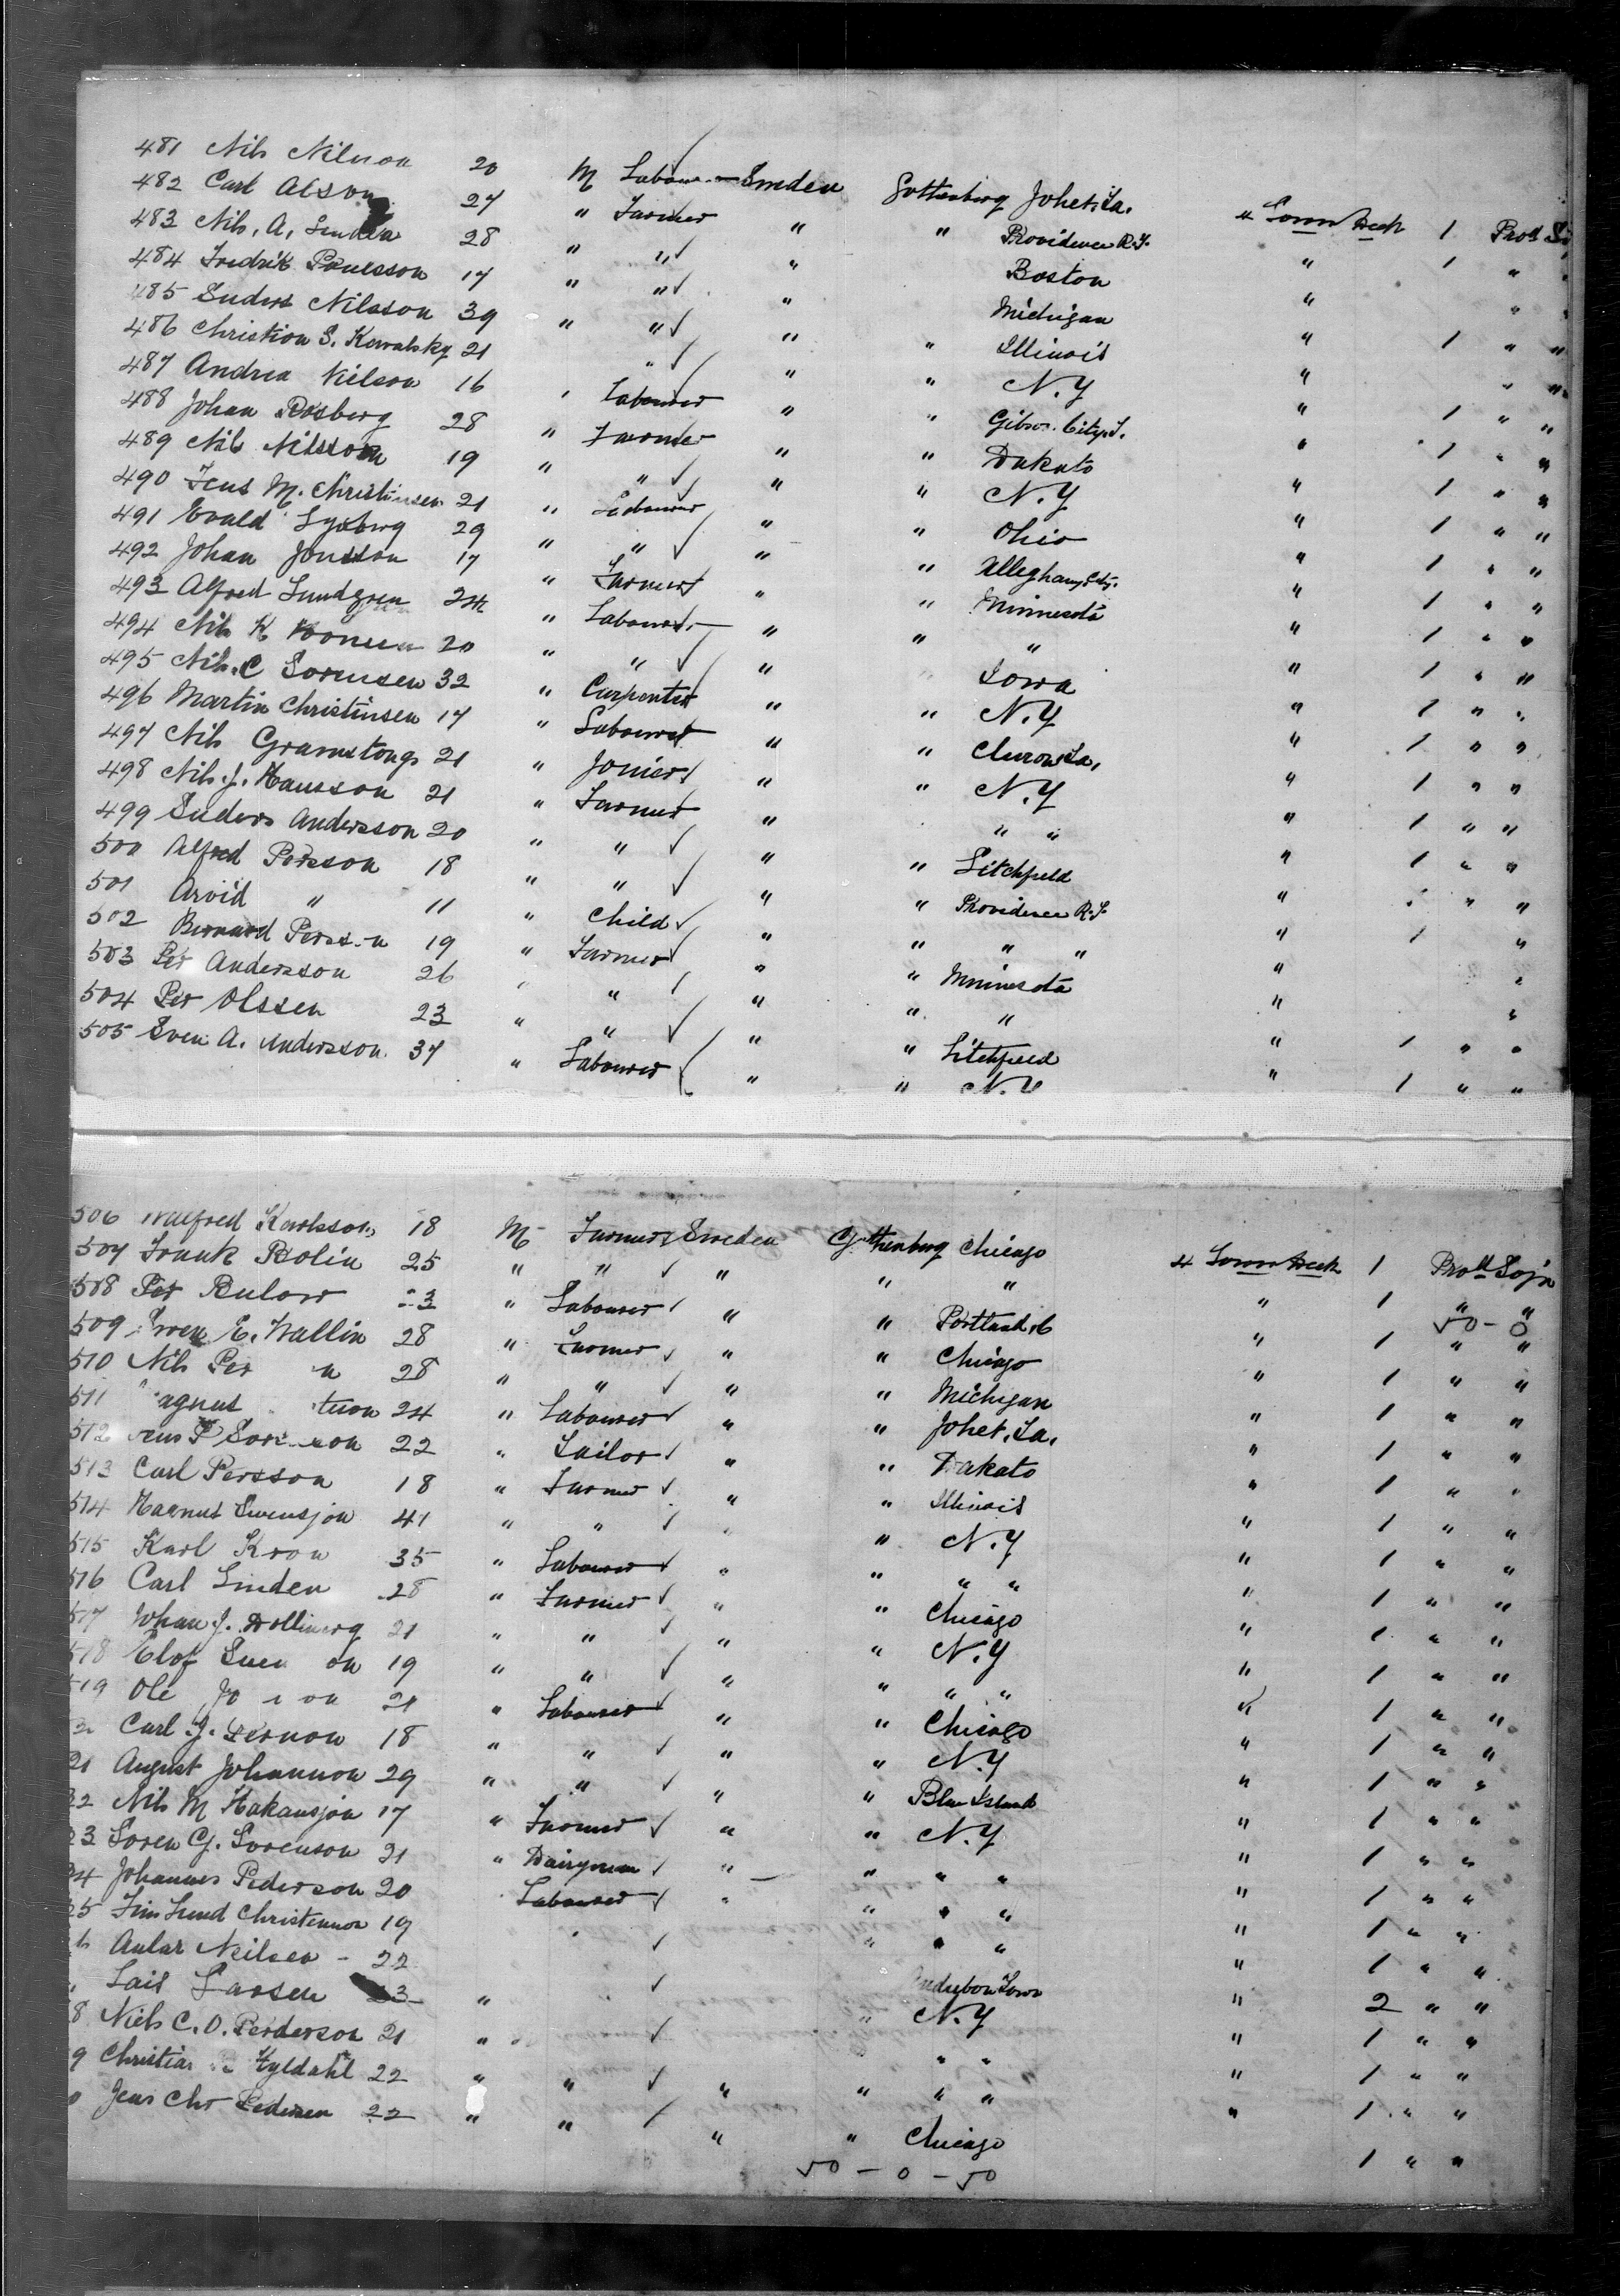 481 Nils Nilsson 20 M Labourer Sweden Gottenberg Joliet, Ia. 4 Lower Deck 1 Pro
482 Carl Olson 27 " Farmer " " Providence R.I. " 1 "
483 Nils. A. Linden 28 " " " Boston " "
484 Fredrik Paulsson 17 " " " Michigan " 1 " "
485 Enders Nilsson 39 " " " " Illinois " " "
486 Christion S. Kowalsky 21 " " " N.Y " 1 " "
487 Andrea Nilson 16 " Labourer " " Gibson City. I. " 1 " "
488 Johan Rosberg 28 " Farmer " " Dakato " 1 " "
489 Nils Nilsson 19 " " " " N.Y " 1 " "
490 Jens M. Christinsen 21 " Labourer " " Ohio " 1 " "
491 Evald Syoberg 29 " " " " Alleghany City. " 1 " "
492 Johan Jonsson 17 " Farmer " " Minnesota " 1 " "
493 Alfred Lundgren 24 " Labourer " " " " 1 " "
494 Nils K 20 " " " Iowa " 1 " "
495 Nils. C Sorensen 32 " Carpenter " " N.Y " 1 " "
496 Martin Christinsen 17 " Labourer " " " 1 " "
497 Nils 21 " Jonier " " N.Y " 1 " "
498 Nils. J. Hansson 21 " Farmer " " " " 1 " "
499 Enders Andersson 20 " " " " Litchfield " 1 " "
500 Alfred Persson 18 " " " " Providence R.I. " " "
501 Arvid " 11 " Child " " " " " 1 "
502 Bernard Persson 19 " Farmer " " Minnesota " "
503 Per Andersson 26 " " " " " " "
504 Per Olssen 23 " " " " Litchfield " 1 " "
505 Sven A. Andersson 37 " Labourer " " N.Y " 1 " "
506 Walfred Karlsson 18 M Farmer Sweden Gothenburg Chicago 4 Lower Deck 1 Pro Sojn
507 Frank Bolin 25 " " " " " " 1 " "
50 - 0
508 Per Bulow 3 " Labourer " " Portland " 1 " "
509 Swen E. Wallin 28 " Farmer " " Chicago " 1 " "
510 Nils Per n 28 " " " " Michigan " 1 " "
511 agnus 24 " Labourer " " Joliet, Ia. " 1 " "
512 ens P 22 " Tailor " " Dakato " 1 " "
513 Carl Persson 18 " Farmer " " Illinois " 1 " "
514 Magnus Swensjon 41 " " " " N.Y " 1 " "
515 Karl Kron 35 " Labourer " " " " " 1 " "
516 Carl Linden 28 " Farmer " " Chicago " 1 " "
517 Johan J. 21 " " " " N.Y " 1 " "
518 Elof Sven on 19 " " " " " " " 1 " "
519 Ole Jo on 21 " Labourer " " Chicago " 1 " "
Carl J. 18 " " " " N.Y " 1 " "
21 August Johannson 29 " " " " Blue Island " 1 " "
22 Nils M Hakansjon 17 " Farmer " " N.Y " 1 " "
23 Soren G. Sorenson 21 " Dairyman " " " " " 1 " "
24 Johannes Pederson 20 Labourer " " " " " 1 " "
25 Jens Lund Christenson 19 " " " " " 1 " "
Nielsen - 22 Audubon Iowa " 2 " "
Lars Larsen 23 " " N.Y " 1 " "
8 Niels C. O. Perderson 21 " " " " 1 " "
9 Christian Hyldahl 22 " " " " " " " 1 " "
0 Jens Chr Pedersen 22 " " " " Chicago 1 " "
50 - 0 - 50